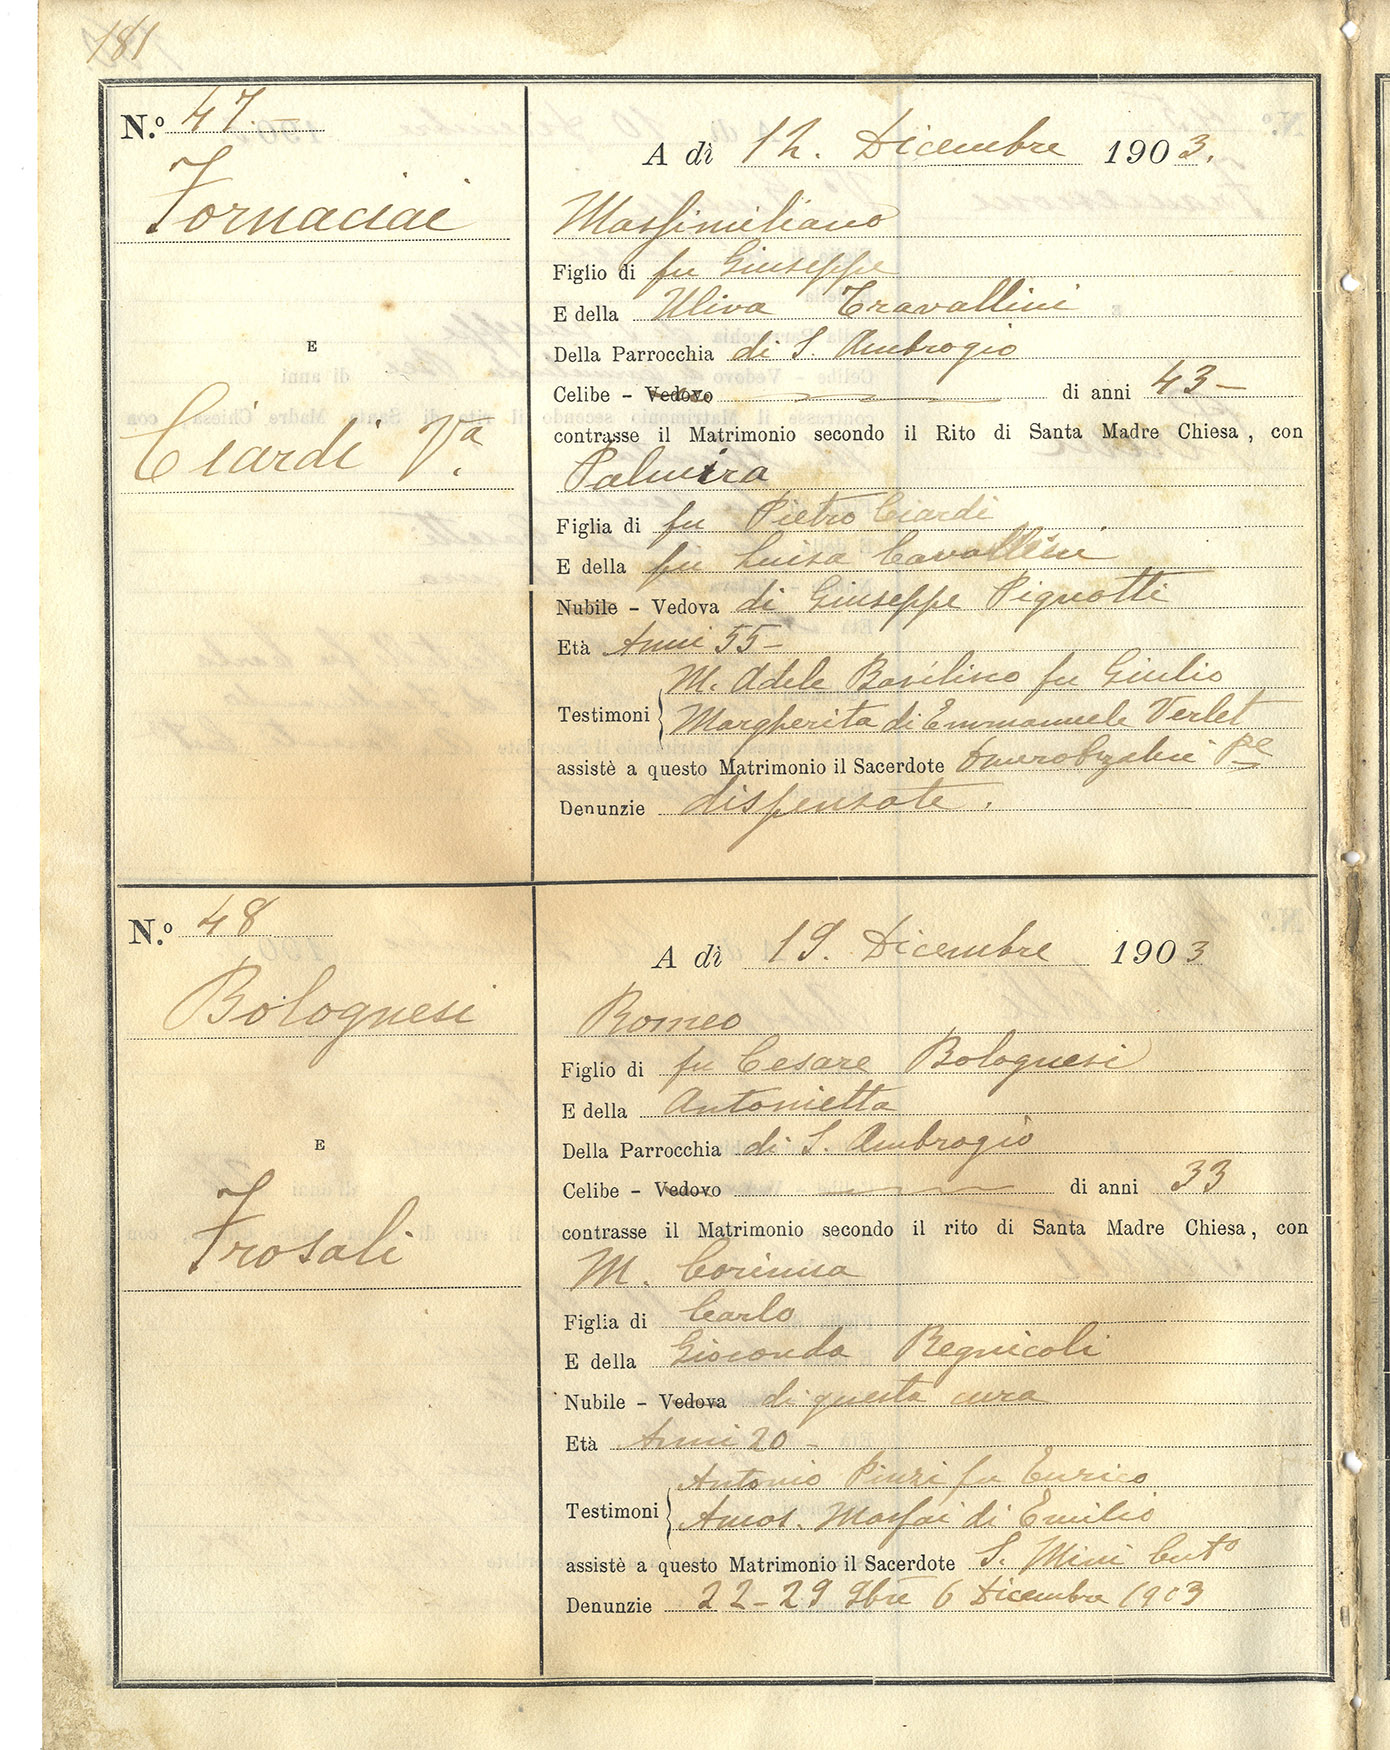 181
N.º 47
Fornaciai
E
Ciardi Vª.
A dì 12. Dicembre 1903.
Massimiliano
Figlio di fu Giuseppe
E della Uliva Travallini
Della Parrocchia di S. Ambrogio
Celibe - Vedovo di anni 43 -
contrasse il Matrimonio secondo il Rito di Santa Madre Chiesa, con
Palmira
Figlia di fu Pietro Ciardi
E della fu Luisa Cavallini
Nubile - Vedova di Giuseppe Pignotti
Età Anni 55 -
M. Adele Basilisco fu Giulio
Testimoni Margherita di Emmanuele Verlet
assistè a questo Matrimonio il Sacerdote
Denunzie dispensate.
N.º 48
Bolognesi
E
Frosali
A dì 19. Dicembre 1903
Romeo
Figlio di fu Cesare Bolognesi
E della Antonietta
Della Parrocchia di S. Ambrogio
Celibe - Vedovo di anni 33
contrasse il Matrimonio secondo il rito di Santa Madre Chiesa, con
M. Corinna
Figlia di Carlo
E della Gioconda Regnicoli
Nubile - Vedova di questa cura
Età Anni 20 -
Antonio Pinzi fu Enrico
Testimoni Amos. Massai di Emilio
assistè a questo Matrimonio il Sacerdote S. Mini Cutº
Denunzie 22 - 29 9bre 6 Dicembre 1903